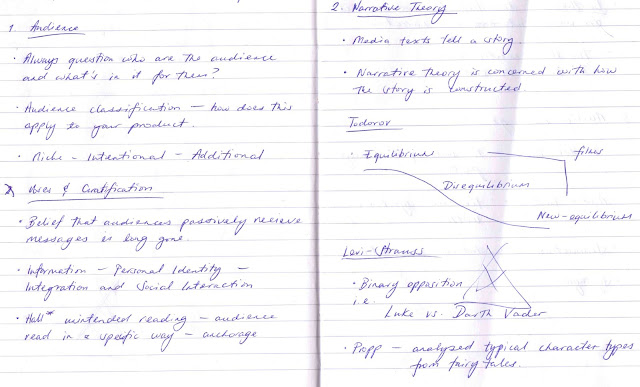 1. Audience
· Always question who are the audience
and what's in it for them?
· Audience classification – how does this
apply to your product.
· Niche – Intentional – Additional
Uses & Gratification
· Belief that audiences passively recieve
messages is long gone.
· Information – Personal Identity –
Integration and Social Interaction
· Hall* unintended reading – audience
read in a specific way – anchorage
2. Narrative Theory
· Media texts tell a story.
· Narrative Theory is concerned with how
the story is constructed.
Todorov
· Equilibrium films
Disequilibrium
New-equilibrium
Levi-Strauss
· Binary opposition
i.e.
Luke vs. Darth Vader
· Propp – analyzed typical character types
from fairy tales.